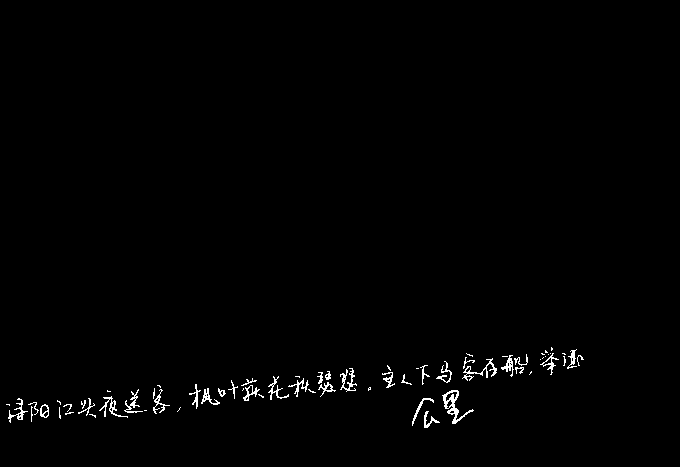 浔阳江头夜送客，枫叶荻花秋瑟瑟。主人下马客在船，举酒
公里